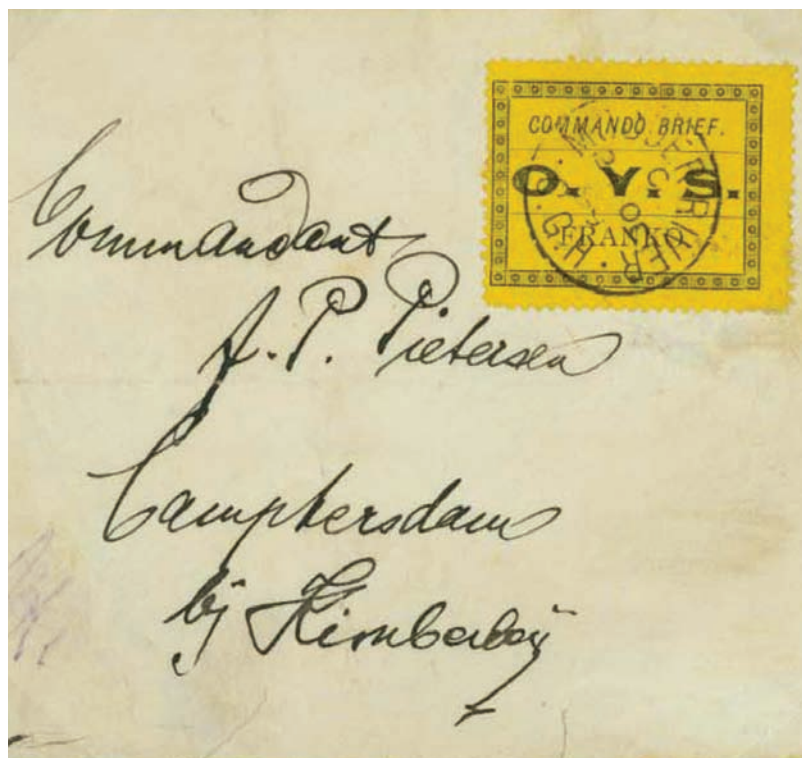 COMMANDO BRIEF.
O. V. S.
FRANKO
RIVER
G.H.
Commandant
A. P. Pietersen
Camphersdam
bij Kimberleij